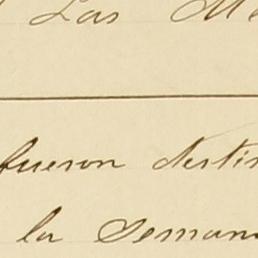 Las Me
fueron desti
la Seman